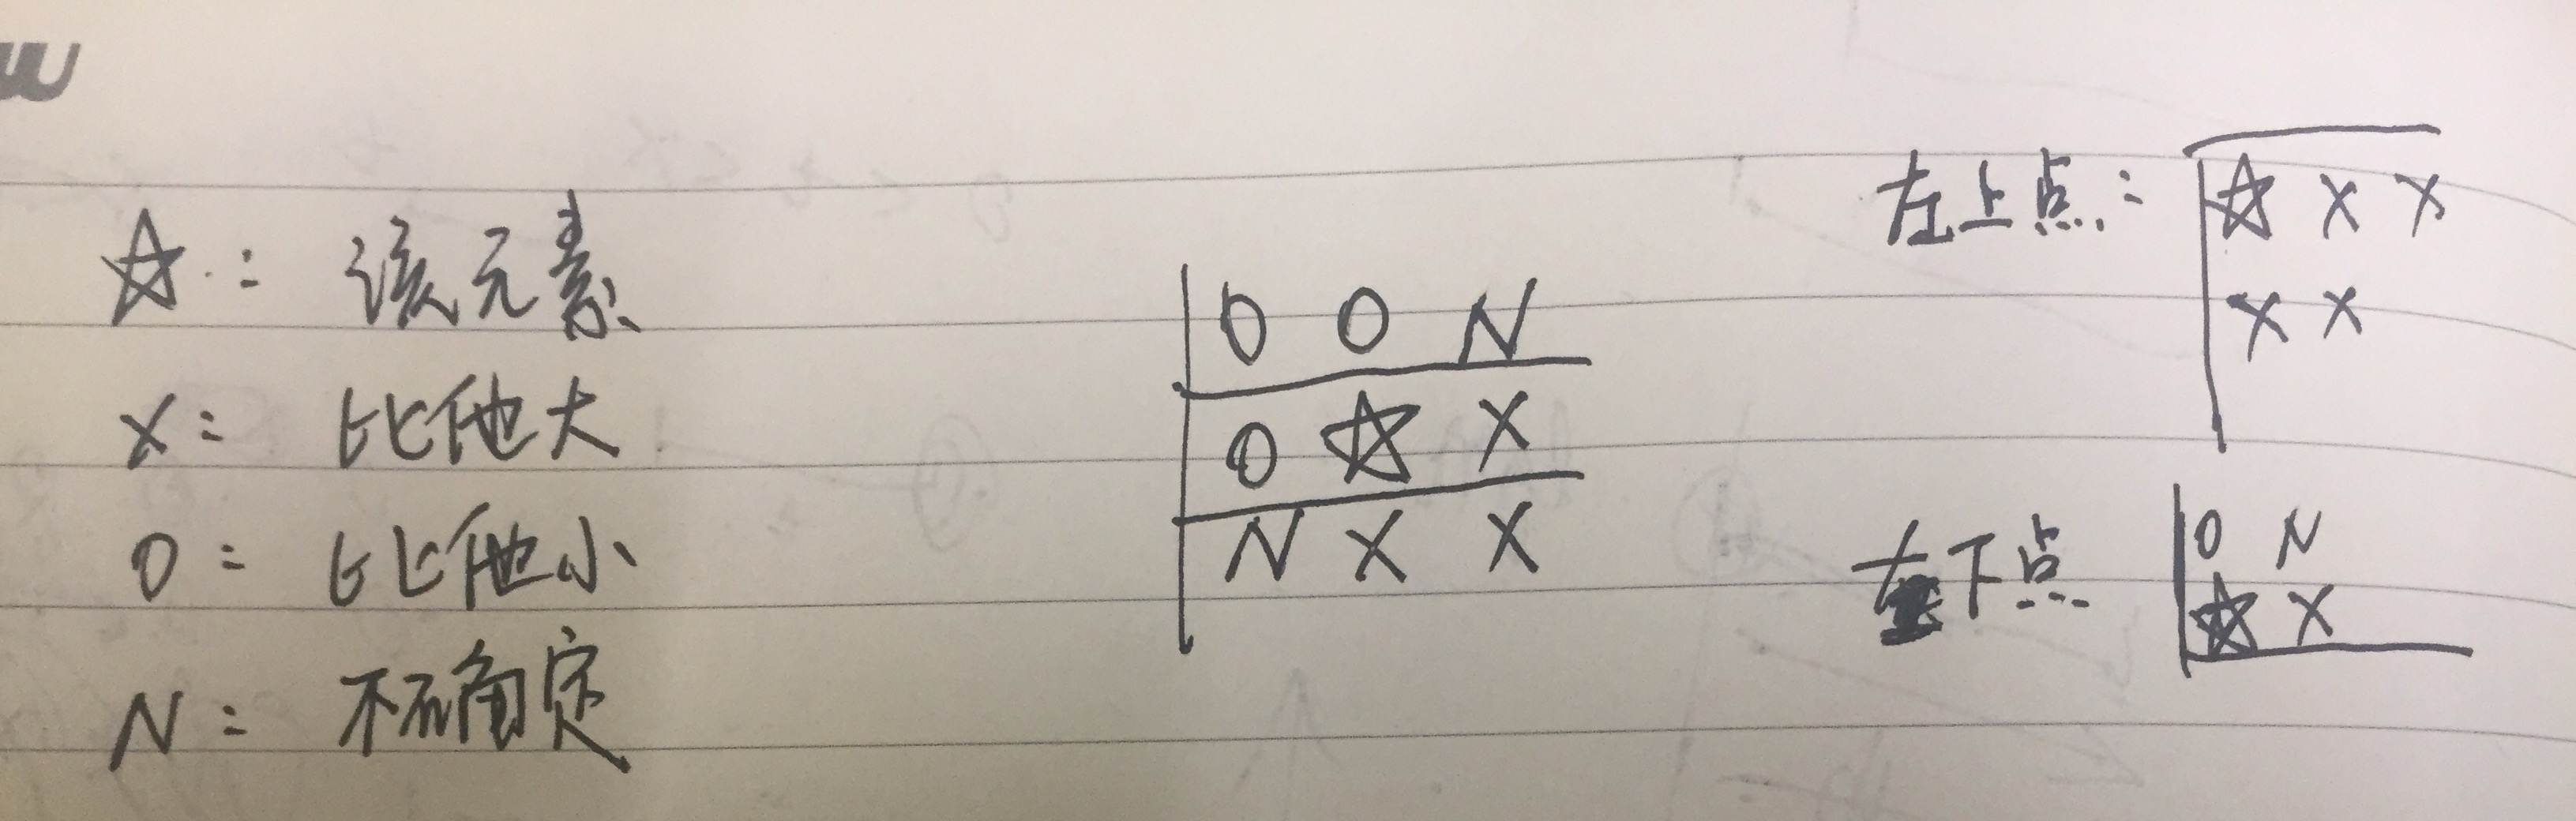 ☆: 该元素
X: 比他大
O: 比他小
N: 不确定
O O N
O ☆ X
N X X
左上点:
☆ X X
X X
左下点
O N
☆ X